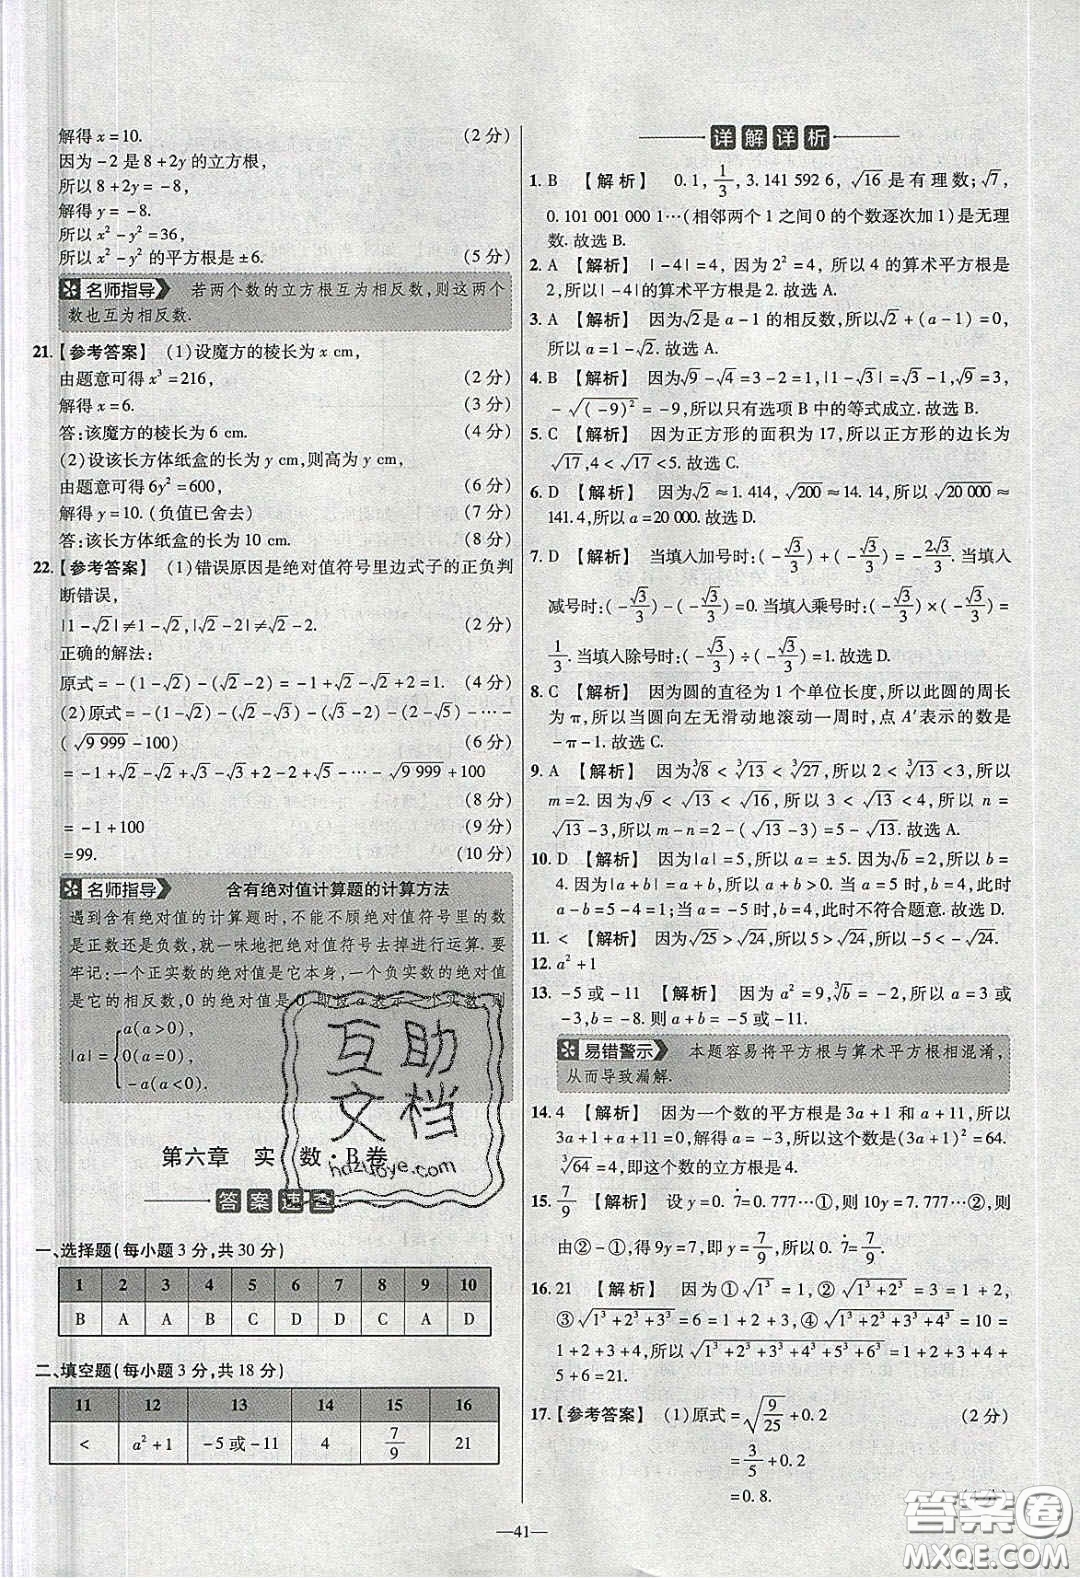 解得 x=10. (2 分)
因为 -2 是 8+2y 的立方根,
所以 8+2y=-8,
解得 y=-8.
所以 x²-y²=36,
所以 x²-y² 的平方根是 ±6. (5 分)
名师指导 若两个数的立方根互为相反数,则这两个
数也互为相反数.
21.【参考答案】 (1)设魔方的棱长为 x cm,
由题意可得 x³=216, (2 分)
解得 x=6. (3 分)
答:该魔方的棱长为 6 cm. (4 分)
(2)设该长方体纸盒的长为 y cm,则高为 y cm,
由题意可得 6y²=600, (6 分)
解得 y=10. (负值已舍去) (7 分)
答:该长方体纸盒的长为 10 cm. (8 分)
22.【参考答案】 (1)错误原因是绝对值符号里边式子的正负判
断错误,
|1-√2|≠1-√2,|√2-2|≠√2-2. (2 分)
正确的解法:
原式=-(1-√2)-(√2-2)=-1+√2-√2+2=1. (4 分)
(2)原式=-(1-√2)-(√2-√3)-(√3-2)-(2-√5)-…-
(√9 999-100) (6 分)
=-1+√2-√2+√3-√3+2-2+√5-…-√9 999+100
(8 分)
=-1+100 (9 分)
=99. (10 分)
名师指导 含有绝对值计算题的计算方法
遇到含有绝对值的计算题时,不能不顾绝对值符号里的数
是正数还是负数,就一味地把绝对值符号去掉进行运算. 要
牢记:一个正实数的绝对值是它本身,一个负实数的绝对值
是它的相反数,0 的绝对值是 0.即设 a 表示一个实数,则
|a|={a(a>0),
0(a=0),
-a(a<0).
互助
文档
hdzuoye.com
第六章 实 数·B卷
答案速查
一、选择题(每小题 3 分,共 30 分)
1 2 3 4 5 6 7 8 9 10
B A A B C D D C A D
二、填空题(每小题 3 分,共 18 分)
11 12 13 14 15 16
< a²+1 -5 或 -11 4 7/9 21
详解详析
1. B 【解析】 0.1, 1/3, 3.141 592 6, √16 是有理数;√7,
0.101 001 000 1…(相邻两个 1 之间 0 的个数逐次加 1)是无理
数. 故选 B.
2. A 【解析】 |-4|=4, 因为 2²=4, 所以 4 的算术平方根是
2,所以|-4|的算术平方根是 2. 故选 A.
3. A 【解析】 因为√2是 a-1 的相反数,所以√2+(a-1)=0,
所以 a=1-√2. 故选 A.
4. B 【解析】 因为√9-√4=3-2=1,|1-√3|=√3-1,√9=3,
-√(-9)²=-9,所以只有选项 B 中的等式成立. 故选 B.
5. C 【解析】 因为正方形的面积为 17,所以正方形的边长为
√17,4<√17<5. 故选 C.
6. D 【解析】 因为√2≈1.414, √200≈14.14, 所以√20 000≈
141.4,所以 a=20 000. 故选 D.
7. D 【解析】 当填入加号时:(-√3/3)+(-√3/3)=-2√3/3. 当填入
减号时:(-√3/3)-(-√3/3)=0. 当填入乘号时:(-√3/3)×(-√3/3)=
1/3. 当填入除号时:(-√3/3)÷(-√3/3)=1. 故选 D.
8. C 【解析】 因为圆的直径为 1 个单位长度,所以此圆的周长
为 π,所以当圆向左无滑动地滚动一周时,点 A′表示的数是
-π-1. 故选 C.
9. A 【解析】 因为³√8<³√13<³√27,所以 2<³√13<3,所以
m=2. 因为√9<√13<√16,所以 3<√13<4,所以 n=
√13-3,所以 m-n=2-(√13-3)=5-√13. 故选 A.
10. D 【解析】 因为|a|=5,所以 a=±5. 因为√b=2,所以 b=
4. 因为|a+b|=a+b,所以 a+b>0,所以 a=5,b=4,此时
a-b=5-4=1;当 a=-5,b=4,此时不符合题意. 故选 D.
11. < 【解析】 因为√25>√24,所以 5>√24,所以 -5<-√24.
12. a²+1
13. -5 或 -11 【解析】 因为 a²=9,³√b=-2,所以 a=3 或
-3,b=-8. 则 a+b=-5 或 -11.
易错警示 本题容易将平方根与算术平方根相混淆,
从而导致漏解.
14. 4 【解析】 因为一个数的平方根是 3a+1 和 a+11,所以
3a+1+a+11=0,解得 a=-3,所以这个数是(3a+1)²=64.
³√64=4,即这个数的立方根是 4.
15. 7/9 【解析】 设 y=0.7̇=0.777…①,则 10y=7.777…②,则
由②-①,得 9y=7,即 y=7/9,所以 0.7̇=7/9.
16. 21 【解析】 因为①√1³=1,②√1³+2³=3=1+2,
③√1³+2³+3³=6=1+2+3,④√1³+2³+3³+4³=10=
1+2+3+4,所以√1³+2³+3³+4³+5³+6³=1+2+3+4+
5+6=21.
17.【参考答案】 (1)原式=√9/25+0.2 (2 分)
=3/5+0.2
=0.8.
答案圈
MXQE.COM
—41—